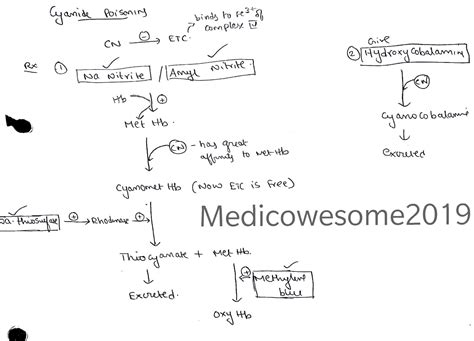 Cyanide Poisoning
CN → ⊖ ETC. binds to Fe3+ of
complex IV
Rx ① Na Nitrite / Amyl Nitrite.
Hb ⊕
Met Hb.
CN - has great
affinity to met Hb
Cyanomet Hb (Now ETC is Free)
Na-thiosulfate → ⊕ Rhodanase → ⊕
Thiocyanate + Met Hb.
Excreted.
⊕ Methylene
blue
Oxy Hb
② Give
Hydroxycobalamin
CN
Cyanocobalamin
Excreted
Medicowesome2019